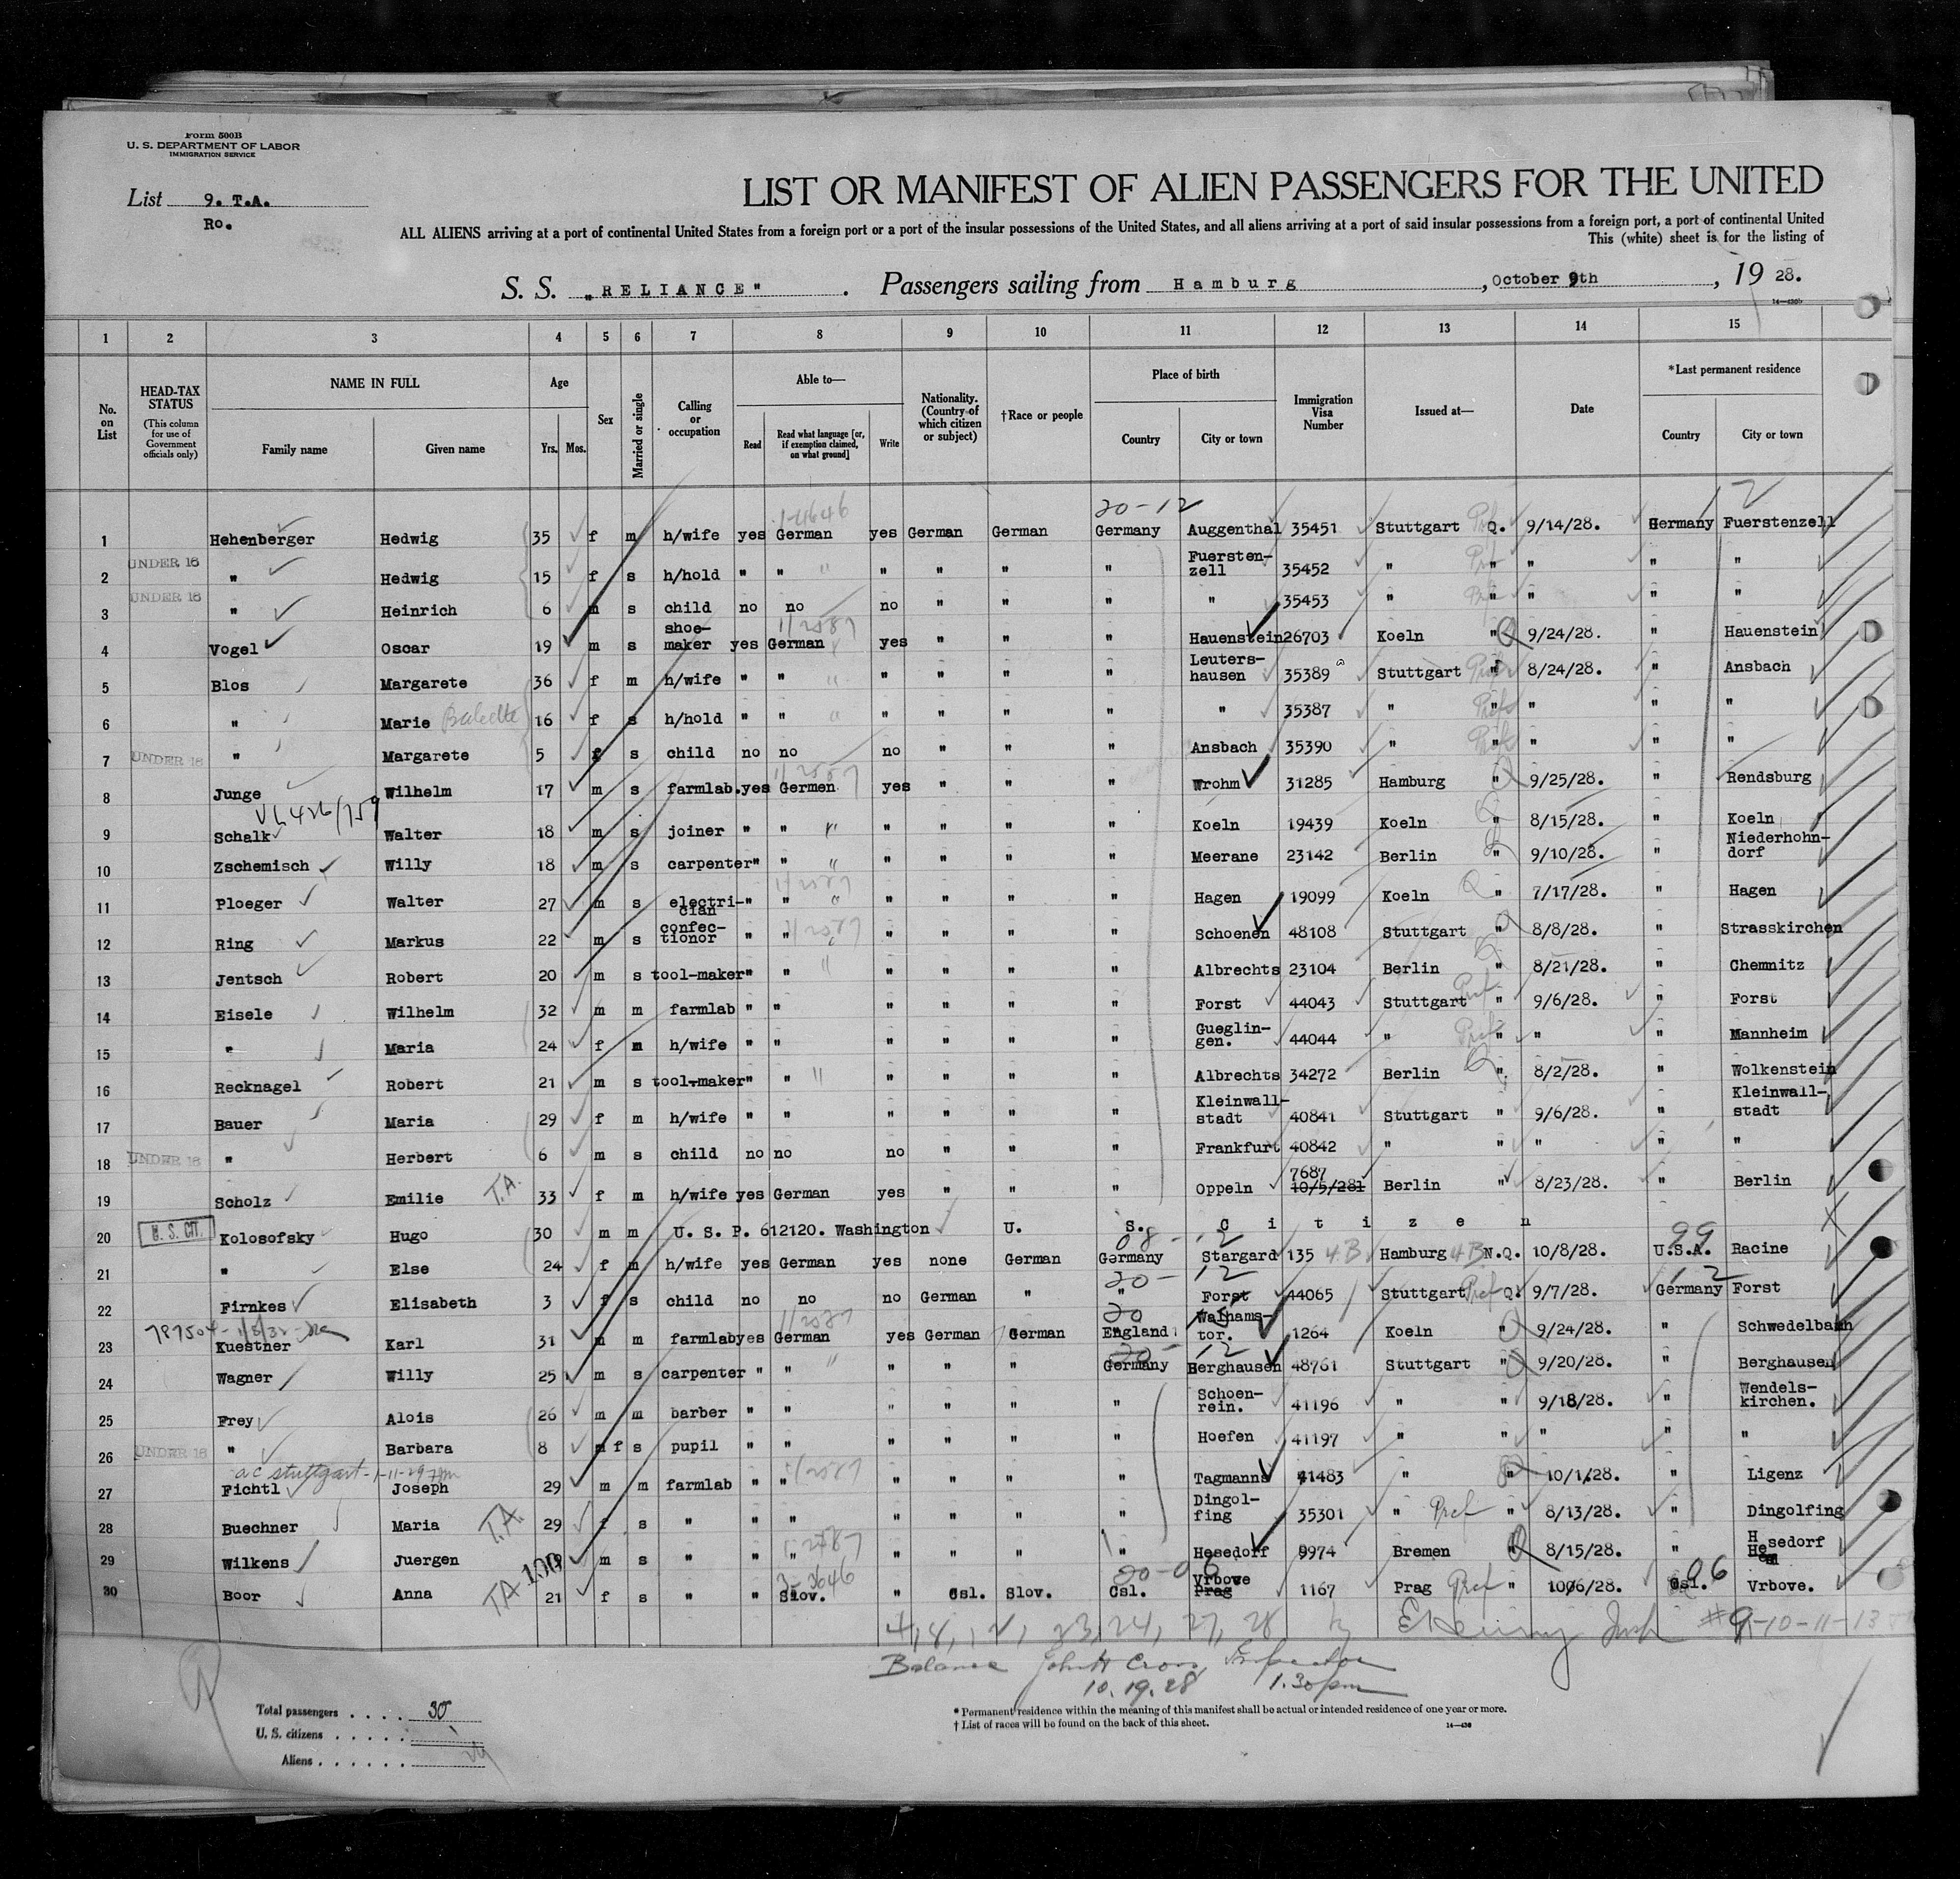 Form 500B
U. S. DEPARTMENT OF LABOR
IMMIGRATION SERVICE
List 9. T.A.
Ro.
LIST OR MANIFEST OF ALIEN PASSENGERS FOR THE UNITED
ALL ALIENS arriving at a port of continental United States from a foreign port or a port of the insular possessions of the United States, and all aliens arriving at a port of said insular possessions from a foreign port, a port of continental United
This (white) sheet is for the listing of
S. S. „RELIANCE" . Passengers sailing from Hamburg , October 9th , 19 28.
1 2 3 4 5 6 7 8 9 10 11 12 13 14 15
No. on List
HEAD-TAX STATUS
(This column for use of Government officials only)
NAME IN FULL
Family name Given name
Age
Yrs. Mos.
Sex
Married or single
Calling or occupation
Able to—
Read
Read what language [or, if exemption claimed, on what ground]
Write
Nationality. (Country of which citizen or subject)
†Race or people
Place of birth
Country City or town
Immigration Visa Number
Issued at—
Date
*Last permanent residence
Country City or town
1-4646 20-12 12
1 Hehenberger Hedwig 35 f m h/wife yes German yes German German Germany Auggenthal 35451 Stuttgart Q. 9/14/28. Germany Fuerstenzell
2 UNDER 16 " Hedwig 15 f s h/hold " " " " " " Fuersten-zell 35452 " " " " "
3 UNDER 16 " Heinrich 6 m s child no no no " " " " 35453 " " " " "
4 Vogel Oscar 19 m s shoe-maker yes German yes " " " Hauenstein 26703 Koeln " 9/24/28. " Hauenstein
5 Blos Margarete 36 f m h/wife " " " " " " Leuters-hausen 35389 Stuttgart " 8/24/28. " Ansbach
6 " Marie Babette 16 f s h/hold " " " " " " " 35387 " " " " "
7 UNDER 16 " Margarete 5 f s child no no no " " " Ansbach 35390 " " " " "
8 Junge Wilhelm 17 m s farmlab. yes Germen yes " " " Wrohm 31285 Hamburg " 9/25/28. " Rendsburg
VL426/759
9 Schalk Walter 18 m s joiner " " " " " " Koeln 19439 Koeln " 8/15/28. " Koeln
10 Zschemisch Willy 18 m s carpenter " " " " " " Meerane 23142 Berlin " 9/10/28. " Niederhohn-dorf
11 Ploeger Walter 27 m s electri-cian " " " " " " Hagen 19099 Koeln " 7/17/28. " Hagen
12 Ring Markus 22 m s confec-tionor " " " " " " Schoenen 48108 Stuttgart " 8/8/28. " Strasskirchen
13 Jentsch Robert 20 m s tool-maker " " " " " " Albrechts 23104 Berlin " 8/21/28. " Chemnitz
14 Eisele Wilhelm 32 m m farmlab " " " " " " Forst 44043 Stuttgart Pref " 9/6/28. " Forst
15 " Maria 24 f m h/wife " " " " " " Gueglin-gen. 44044 " Pref " " " Mannheim
16 Recknagel Robert 21 m s tool-maker " " " " " " Albrechts 34272 Berlin " 8/2/28. " Wolkenstein
17 Bauer Maria 29 f m h/wife " " " " " " Kleinwall-stadt 40841 Stuttgart " 9/6/28. " Kleinwall-stadt
18 UNDER 16 " Herbert 6 m s child no no no " " " Frankfurt 40842 " " " " "
19 Scholz Emilie T.A. 33 f m h/wife yes German yes " " " Oppeln 7687 10/5/281 Berlin " 8/23/28. " Berlin
20 U. S. CIT. Kolosofsky Hugo 30 m m U. S. P. 612120. Washington U. S. C i t i z e n
21 " Else 24 f m h/wife yes German yes none German Germany Stargard 135 4B Hamburg 4B N.Q. 10/8/28. 99 U.S.A. Racine
20-12 12
22 Firnkes Elisabeth 3 f s child no no no German " " Forst 44065 Stuttgart Pref Q. 9/7/28. Germany Forst
23 Kuestner Karl 31 m m farmlab yes German yes German German England Walhams-tor. 1264 Koeln " 9/24/28. " Schwedelbach
24 Wagner Willy 25 m s carpenter " " " " " Germany Berghausen 48761 Stuttgart " 9/20/28. " Berghausen
25 Frey Alois 26 m m barber " " " " " " Schoen-rein. 41196 " " 9/18/28. " Wendels-kirchen.
26 UNDER 16 " Barbara 8 f s pupil " " " " " " Hoefen 41197 " " " " "
ac stuttgart-1-11-29
27 Fichtl Joseph 29 m m farmlab " " " " " " Tagmanns 41483 " " 10/1/28. " Ligenz
28 Buechner Maria T.A. 29 f s " " " " " " " Dingol-fing 35301 " Pref " 8/13/28. " Dingolfing
29 Wilkens Juergen m s " " " " " " " Hesedorf 9974 Bremen " 8/15/28. " Hesedorf
30 Boor Anna TA 21 f s " " Slov. " Csl. Slov. Csl. Vrbove Prag 1167 Prag Pref " 10/6/28. Csl. 06 Vrbove.
#9-10-11-13
Balance John H Cross Inspector
10.19.28 1.30pm
Total passengers . . . . 30
U. S. citizens . . . . .
Aliens . . . . . .
* Permanent residence within the meaning of this manifest shall be actual or intended residence of one year or more.
† List of races will be found on the back of this sheet.
14—430